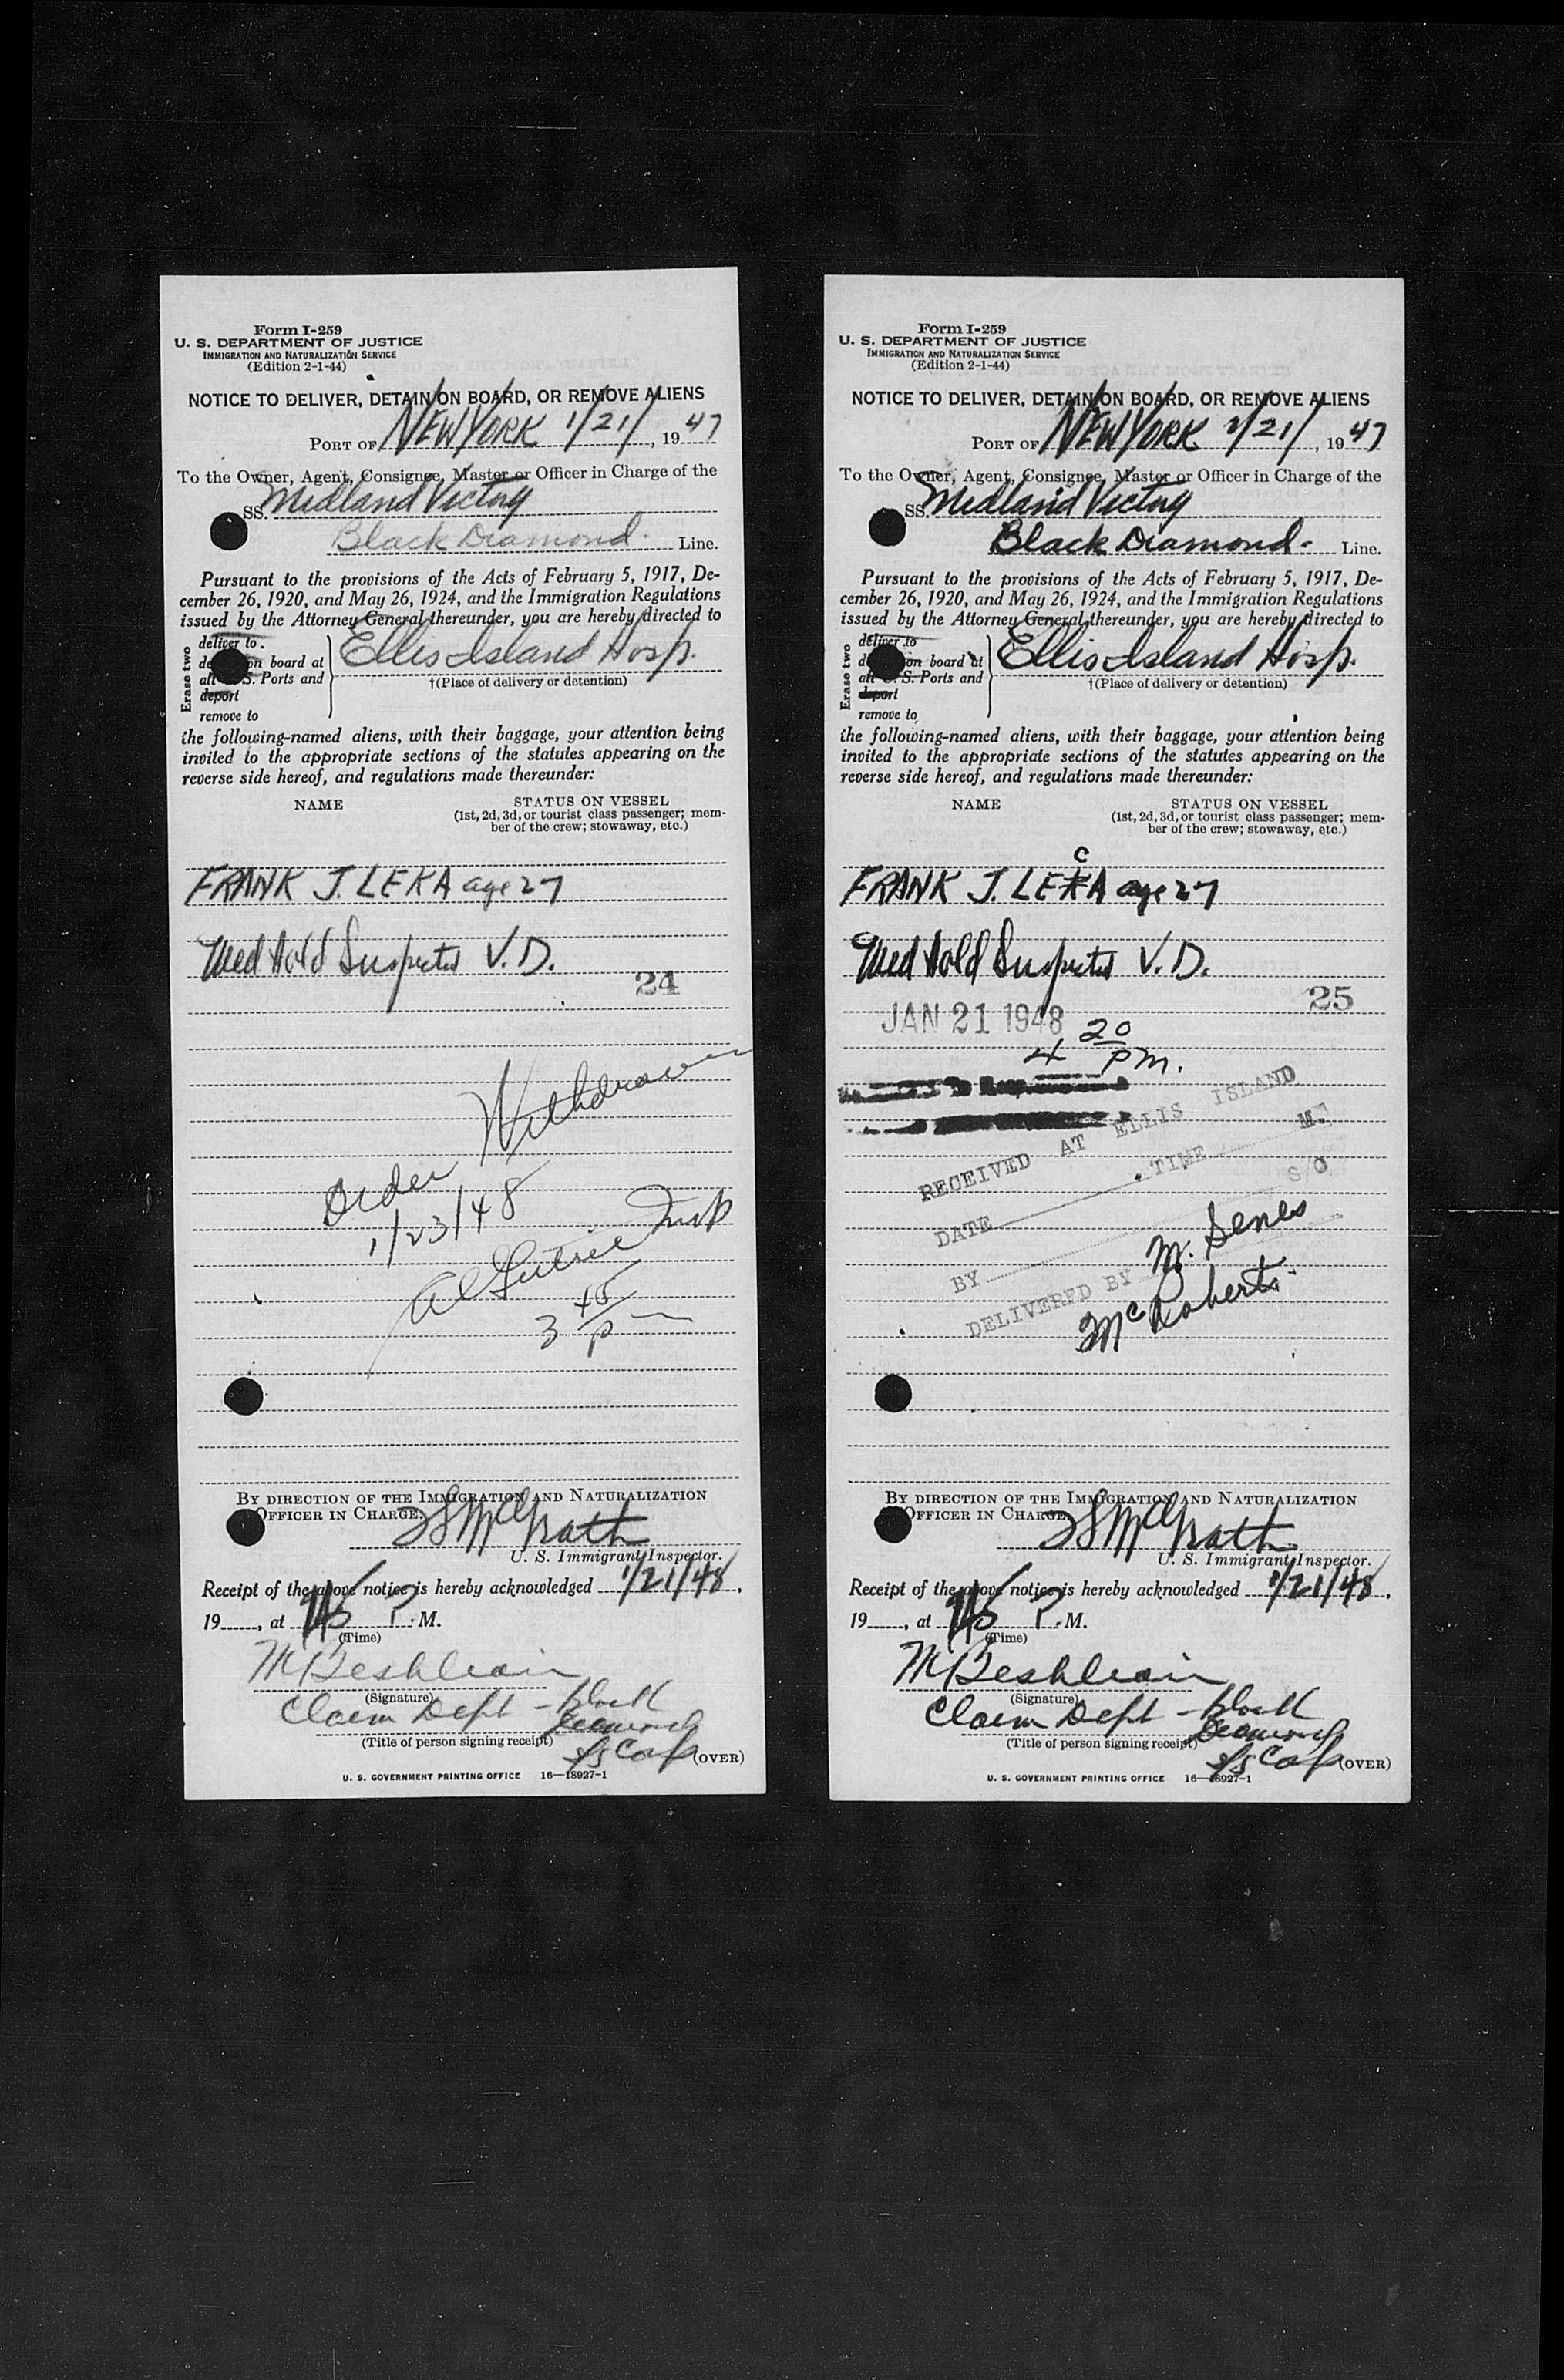 Form I-259
U. S. DEPARTMENT OF JUSTICE
IMMIGRATION AND NATURALIZATION SERVICE
(Edition 2-1-44)
NOTICE TO DELIVER, DETAIN ON BOARD, OR REMOVE ALIENS
PORT OF NEW YORK 1/21/, 1947
To the Owner, Agent, Consignee, Master or Officer in Charge of the
SS. Midland Victory
Black Diamond. Line.
Pursuant to the provisions of the Acts of February 5, 1917, De-
cember 26, 1920, and May 26, 1924, and the Immigration Regulations
issued by the Attorney General thereunder, you are hereby directed to
Erase two
deliver to
on board at
S. Ports and
deport
remove to
Ellis Island Hosp.
†(Place of delivery or detention)
the following-named aliens, with their baggage, your attention being
invited to the appropriate sections of the statutes appearing on the
reverse side hereof, and regulations made thereunder:
NAME STATUS ON VESSEL
(1st, 2d, 3d, or tourist class passenger; mem-
ber of the crew; stowaway, etc.)
FRANK J. LEKA age 27
Med Hold Suspected V.D.
24
Withdrawn
Order
1/23/48
Insp
3 45
p
BY DIRECTION OF THE IMMIGRATION AND NATURALIZATION
OFFICER IN CHARGE.
McGrath
U. S. Immigrant Inspector.
Receipt of the above notice is hereby acknowledged 1/21/48,
19, at P. M.
(Time)
(Signature)
Claim Dept - Black
Diamond
(Title of person signing receipt)
S/S Corp
(OVER)
U. S. GOVERNMENT PRINTING OFFICE 16—18927-1
Form I-259
U. S. DEPARTMENT OF JUSTICE
IMMIGRATION AND NATURALIZATION SERVICE
(Edition 2-1-44)
NOTICE TO DELIVER, DETAIN ON BOARD, OR REMOVE ALIENS
PORT OF NEW YORK 1/21/, 1947
To the Owner, Agent, Consignee, Master or Officer in Charge of the
SS. Midland Victory
Black Diamond. Line.
Pursuant to the provisions of the Acts of February 5, 1917, De-
cember 26, 1920, and May 26, 1924, and the Immigration Regulations
issued by the Attorney General thereunder, you are hereby directed to
Erase two
deliver to
on board at
S. Ports and
deport
remove to
Ellis Island Hosp.
†(Place of delivery or detention)
the following-named aliens, with their baggage, your attention being
invited to the appropriate sections of the statutes appearing on the
reverse side hereof, and regulations made thereunder:
NAME STATUS ON VESSEL
(1st, 2d, 3d, or tourist class passenger; mem-
ber of the crew; stowaway, etc.)
C
FRANK J. LEKA age 27
Med Hold Suspected V.D.
25
JAN 21 1948
4 20 PM.
RECEIVED AT ELLIS ISLAND
DATE . TIME M.
BY S/O
DELIVERED BY M. Senes
McRoberts.
BY DIRECTION OF THE IMMIGRATION AND NATURALIZATION
OFFICER IN CHARGE
McGrath
U. S. Immigrant Inspector.
Receipt of the above notice is hereby acknowledged 1/21/48,
19, at P. M.
(Time)
(Signature)
Claim Dept - Black
Diamond
(Title of person signing receipt)
S/S Corp
(OVER)
U. S. GOVERNMENT PRINTING OFFICE 16—18927-1